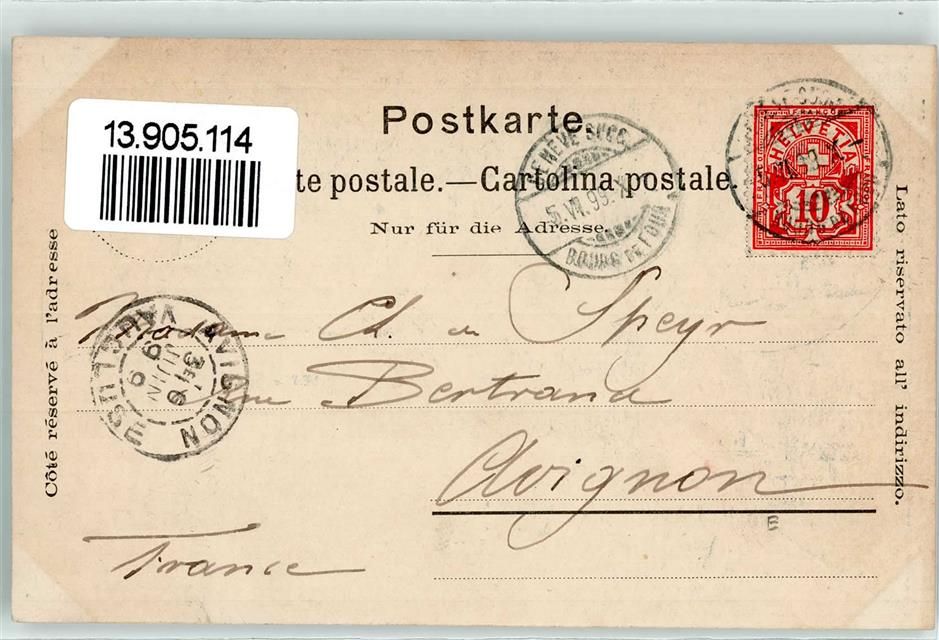 13.905.114
Postkarte
te postale.—Cartolina postale.
Nur für die Adresse.
Côté réservé à l'adresse
Lato riservato all' indirizzo.
HELVETIA
FRANCO
10
GENEVE SUCC.
5.VI.99.
BOURG DE FOUR
AVIGNON
VAUCLUSE
6
JUIN
99
Madame Ch. de Speyr
Rue Bertrand
Avignon
France
E